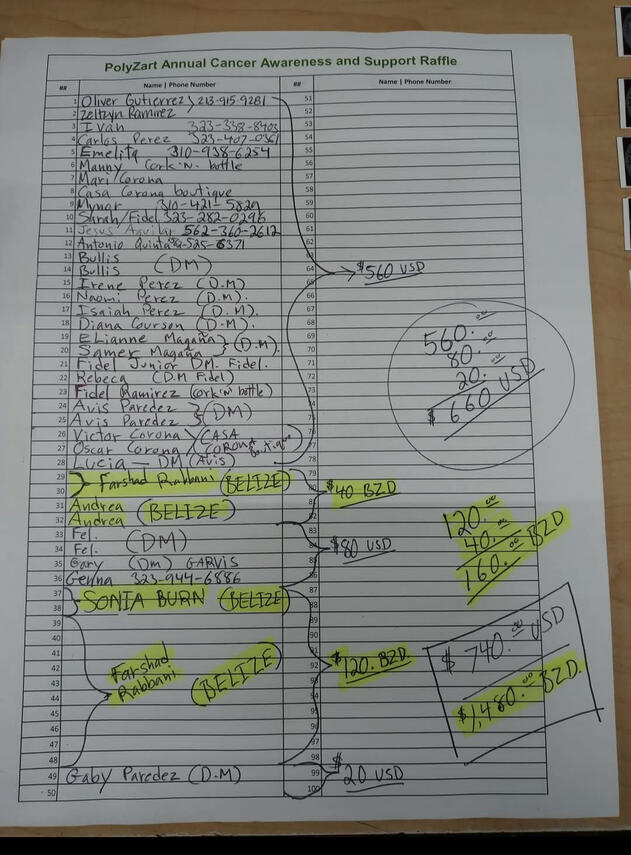 PolyZart Annual Cancer Awareness and Support Raffle
## Name | Phone Number ## Name | Phone Number
1 Oliver Gutierrez 213-915-9281 51
2 Zeltzyn Ramirez 52
3 Ivan 323-338-8403 53
4 Carlos Perez 323-407-0361 54
5 Emelita 310-938-6254 55
6 Manny Cork 'N' bottle 56
7 Mari/Corona 57
8 Casa Corona boutique 58
9 Mynor 310-421-5829 59
10 Sarah/Fidel 323-282-0296 60
11 Jesus Aguilar 562-360-2612 61
12 Antonio Quinta 62
13 Bullis 63
14 Bullis (DM) 64 $560 USD
15 Irene Perez (D.M) 65
16 Naomi Perez (D.M). 66
17 Isaiah Perez (D.M). 67
18 Diana Courson (D.M). 68
19 ELianne Magaña 69
20 Samer Magaña } (D.M). 70
21 Fidel Junior DM. Fidel. 71
22 Rebeca (D.M Fidel) 72
23 Fidel Ramirez (Cork 'n' bottle) 73
24 Avis Paredez 74
25 Avis Paredez } (DM) 75
26 Victor Corona (CASA 76
27 Oscar Corona CORONA boutique) 77
28 Lucia — DM (Avis) 78
560.00
80.00
20.00
$ 660 USD
29 Farshad Rabbani (BELIZE) 79
30 80 $40 BZD
31 Andrea 81
32 Andrea (BELIZE) 82
33 Fel. 83
34 Fel. (DM) 84 $80 USD
35 Gary (Dm) GARVIS 85
36 Genna 323-944-6886 86
120.00
40.00
160.00 BZD
37 SONIA BURN (BELIZE) 87
38 88
39 89
40 90
41 Farshad 91
42 Rabbani (BELIZE) 92 $120. BZD
43 93
44 94
45 95
46 96
47 97
48 98
49 Gaby Paredez (D.M) 99 $20 USD
50 100
$ 740.00 USD
$1,480.00 BZD.